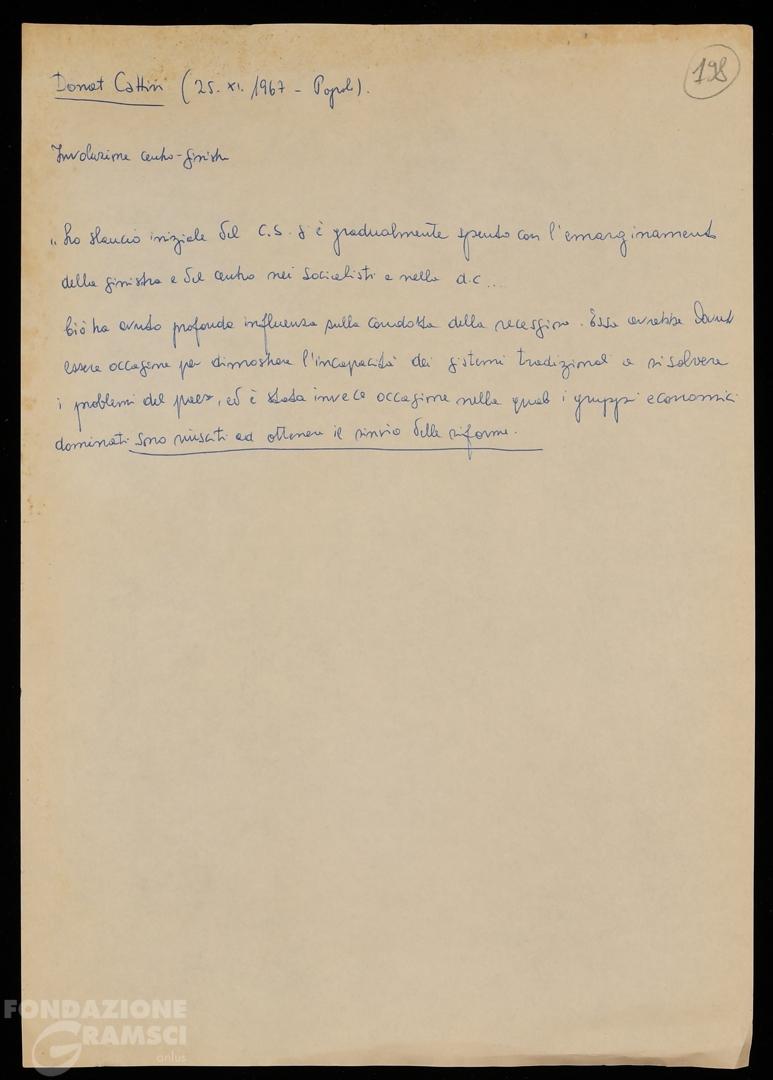 198
Donat Cattin (25. XI. 1967 - Popolo).
Involuzione centro-sinistra
"Lo slancio iniziale del C.S. s'è gradualmente spento con l'emarginamento
della sinistra e del centro nei socialisti e nella d.c....
Ciò ha avuto profonda influenza sulla condotta della recessione. Essa avrebbe dovuto
essere occasione per dimostrare l'incapacità dei sistemi tradizionali a risolvere
i problemi del paese, ed è stata invece occasione nella quale i gruppi economici
dominanti sono riusciti ad ottenere il rinvio delle riforme.
FONDAZIONE
GRAMSCI
onlus